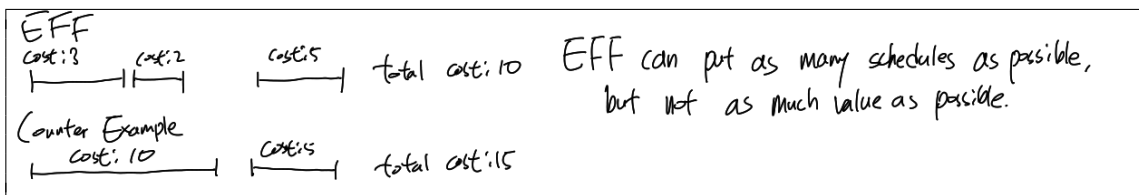 EFF
cost:3 cost:2 cost:5 total cost: 10
Counter Example
cost: 10 cost:5 total cost:15
EFF can put as many schedules as possible,
but not as much value as possible.